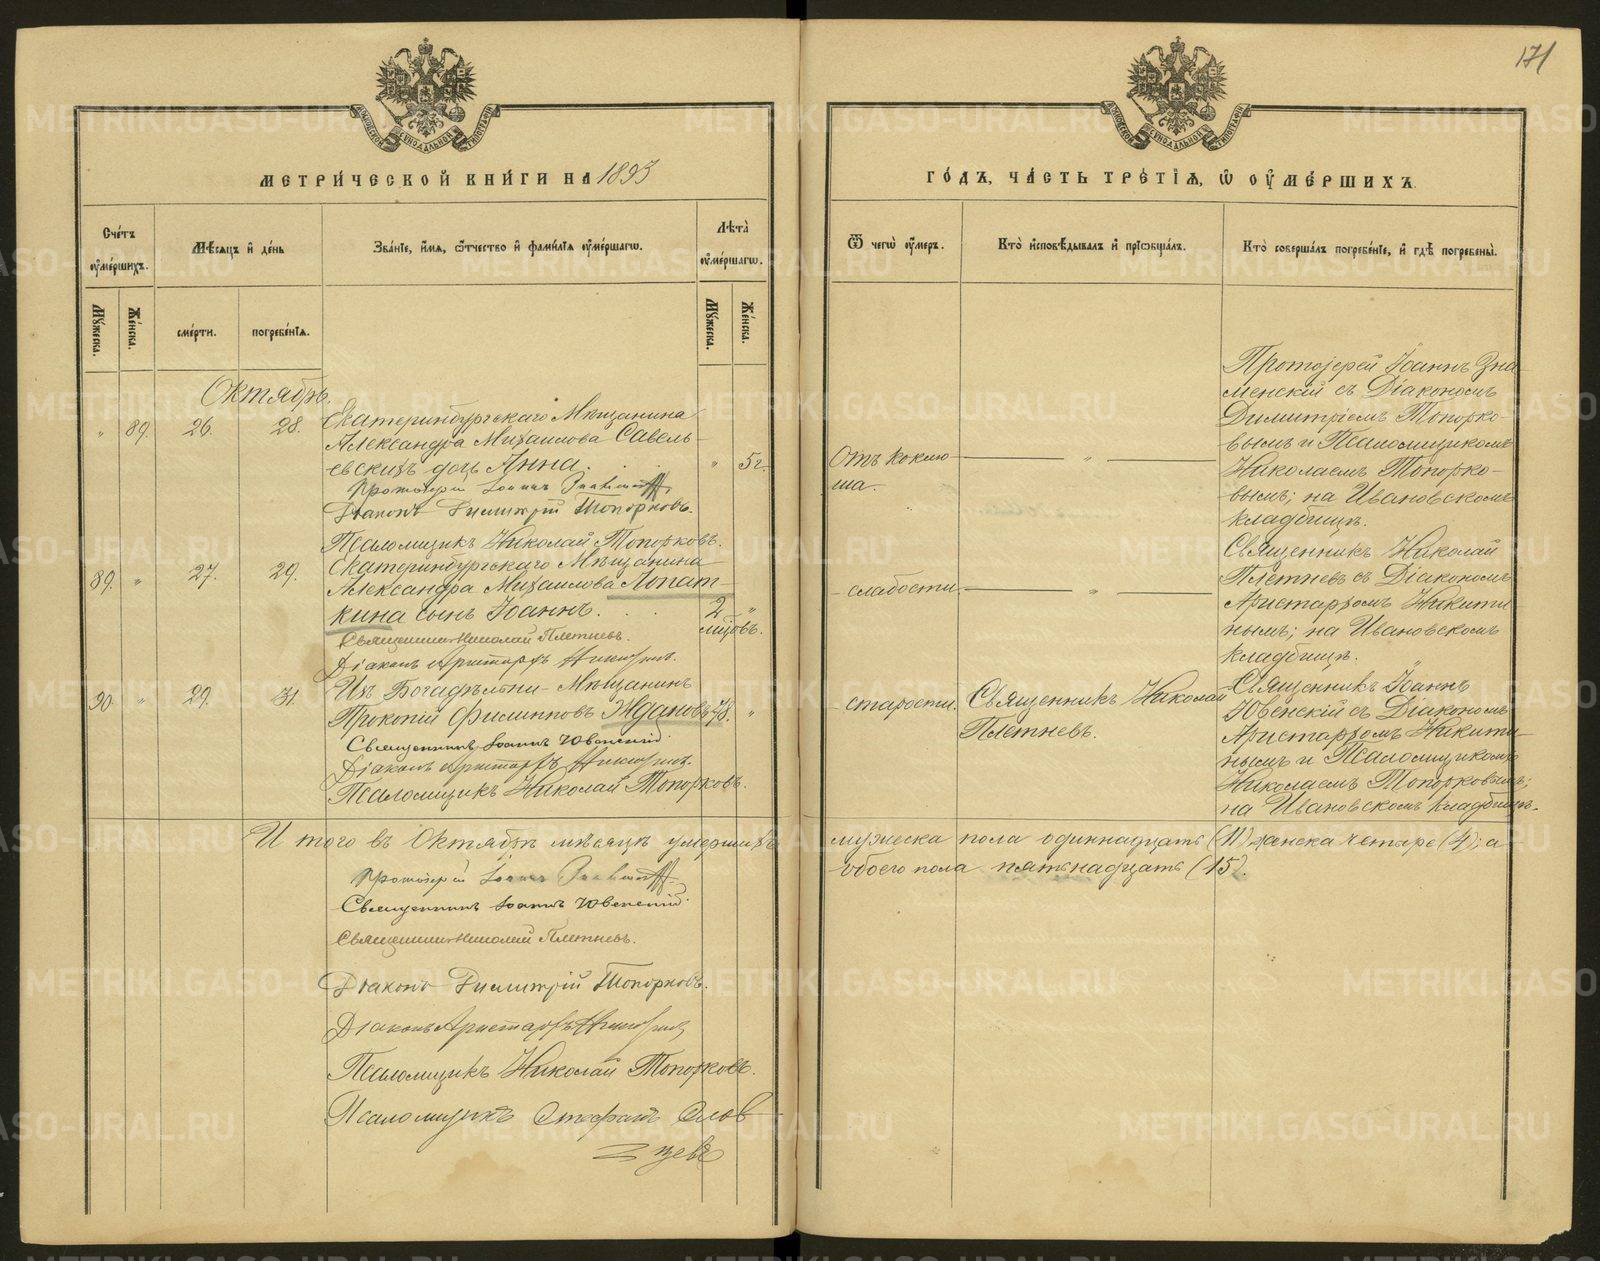 171
МЕТРИЧЕСКОЙ КНИГИ НА 1895
ГОДЪ, ЧАСТЬ ТРЕТІЯ, Ѿ ОУМЕРШИХЪ.
Счетъ оумершихъ.
Мѣсяцъ и день
Званіе, имя, ѿтчество и фамилія оумершагѡ.
Лѣта оумершагѡ.
Мужеска.
Женска.
смерти.
погребенія.
Мужеска.
Женска.
Ѿ чегѡ оумеръ.
Кто исповѣдывалъ и пріѡбщалъ.
Кто совершалъ погребеніе, и гдѣ погребены.
Октябрь.
" 89. 26. 28.
Екатеринбургскаго Мѣщанина
Александра Михаилова Савель-
евскихъ дочь Анна.
" 5 г.
Протоіерей Іоаннъ Знаменскій
Діаконъ Димитрій Топорковъ.
Псаломщикъ Николай Топорковъ.
Отъ коклю-
ша.
"
Протоіерей Іоаннъ Зна-
менскій съ Діакономъ
Димитріемъ Топорко-
вымъ и Псаломщикомъ
Николаемъ Топорко-
вымъ; на Ивановскомъ
кладбищѣ.
89. " 27. 29.
Екатеринбургскаго Мѣщанина
Александра Михаилова Лопат-
кина сынъ Іоаннъ.
2 мѣсцовъ. "
Священникъ Николай Плетневъ.
Діаконъ Аристархъ Никитинъ.
слабости.
"
Священникъ Николай
Плетневъ съ Діакономъ
Аристархомъ Никити-
нымъ; на Ивановскомъ
кладбищѣ.
90. " 29. 31.
Изъ Богадѣльни Мѣщанинъ
Прокопій Филипповъ Ждановъ
78. "
Священникъ Іоаннъ Ювенскій.
Діаконъ Аристархъ Никитинъ.
Псаломщикъ Николай Топорковъ.
старости.
Священникъ Николай
Плетневъ.
Священникъ Іоаннъ
Ювенскій съ Діакономъ
Аристархомъ Никити-
нымъ и Псаломщикомъ
Николаемъ Топорковымъ;
на Ивановскомъ кладбищѣ.
Итого въ Октябрѣ мѣсяцѣ умершихъ мужеска пола одиннадцать (11) женска четыре (4); а
обоего пола пятьнадцать (15).
Протоіерей Іоаннъ Знаменскій
Священникъ Іоаннъ Ювенскій.
Священникъ Николай Плетневъ.
Діаконъ Димитрій Топорковъ.
Діаконъ Аристархъ Никитинъ
Псаломщикъ Николай Топорковъ.
Псаломщикъ Стефанъ Слов-
цевъ
METRIKI.GASO-URAL.RU